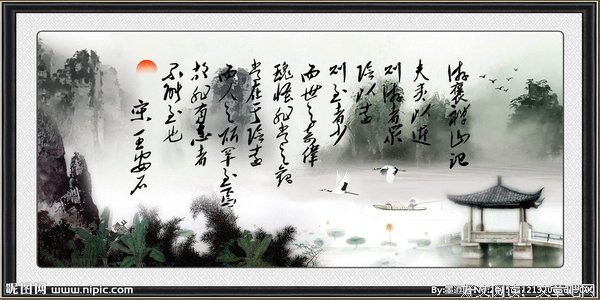 游褒禅山记
夫夷以近
则游者众
险以远
则至者少
而世之奇伟
瑰怪非常之观
常在于险远
而人之所罕至焉
故非有志者
不能至也
宋 王安石
昵图网 www.nipic.com